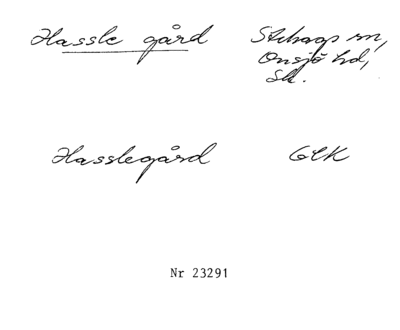 Hassle gård Stehags sn,
Onsjö hd,
Sk.
Hasslegård GEK
Nr 23291